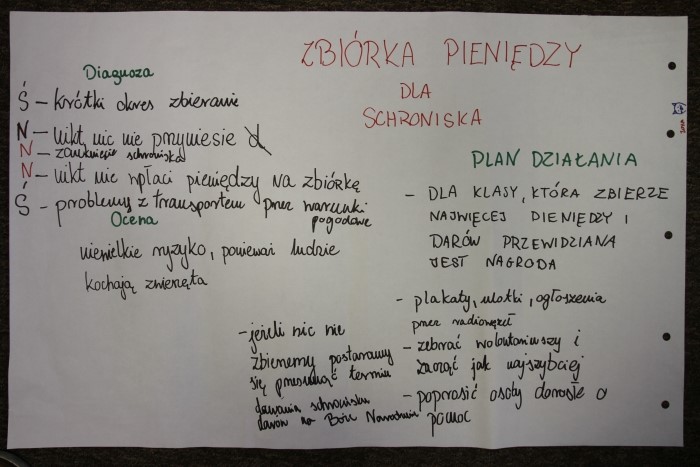 ZBIÓRKA PIENIĘDZY
DLA
SCHRONISKA
Diagnoza
Ś – krótki okres zbierania
N – nikt nic nie przyniesie
N – zamknięcie schroniska
N – nikt nic wpłaci pieniędzy na zbiórkę
Ś – problemy z transportem przez warunki
pogodowe
Ocena
niewielkie ryzyko, ponieważ ludzie
kochają zwierzęta
PLAN DZIAŁANIA
– DLA KLASY, KTÓRA ZBIERZE
NAJWIĘCEJ PIENIĘDZY I
DARÓW PRZEWIDZIANA
JEST NAGRODA
– plakaty, ulotki, ogłoszenia
przez radiowęzeł
– zebrać wolontariuszy i
zacząć jak najszybciej
– poprosić osoby dorosłe o
pomoc
– jeżeli nic nie
zbierzemy postaramy
się przesunąć termin
dawania schronisku
darów na Boże Narodzenie